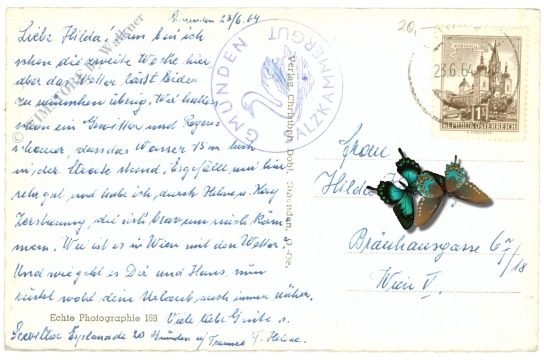 Gmunden 23/6.64
Liebe Hilda! Nun bin ich
schon die zweite Woche hier
aber das Wetter lässt leider
zu wünschen übrig. Wir hatten
schon ein Gewitter und Regen-
schauer, dass das Wasser 15 cm hoch
in der Strasse stand. Es gefällt mir hier
sehr gut und habe ich durch Helene u. Karl
Zerstreuung, die sich brav um mich küm
mern. Wie ist es in Wien mit den Wetter?
Und wie geht es Dir und Hans, nun
rückt wohl dein Urlaub auch immer näher.
Viele liebe Grüße v.
Esplanade 20 Gmunden a/ Traunsee T. Helene.
Echte Photographie 169
Verlag Christoph Gmunden, O.-Oe.
GMUNDEN
SALZKAMMERGUT
20,-
23.6.64
REPUBLIK ÖSTERREICH
Frau
Hilda
Bräuhausgasse 67/18
Wien V.